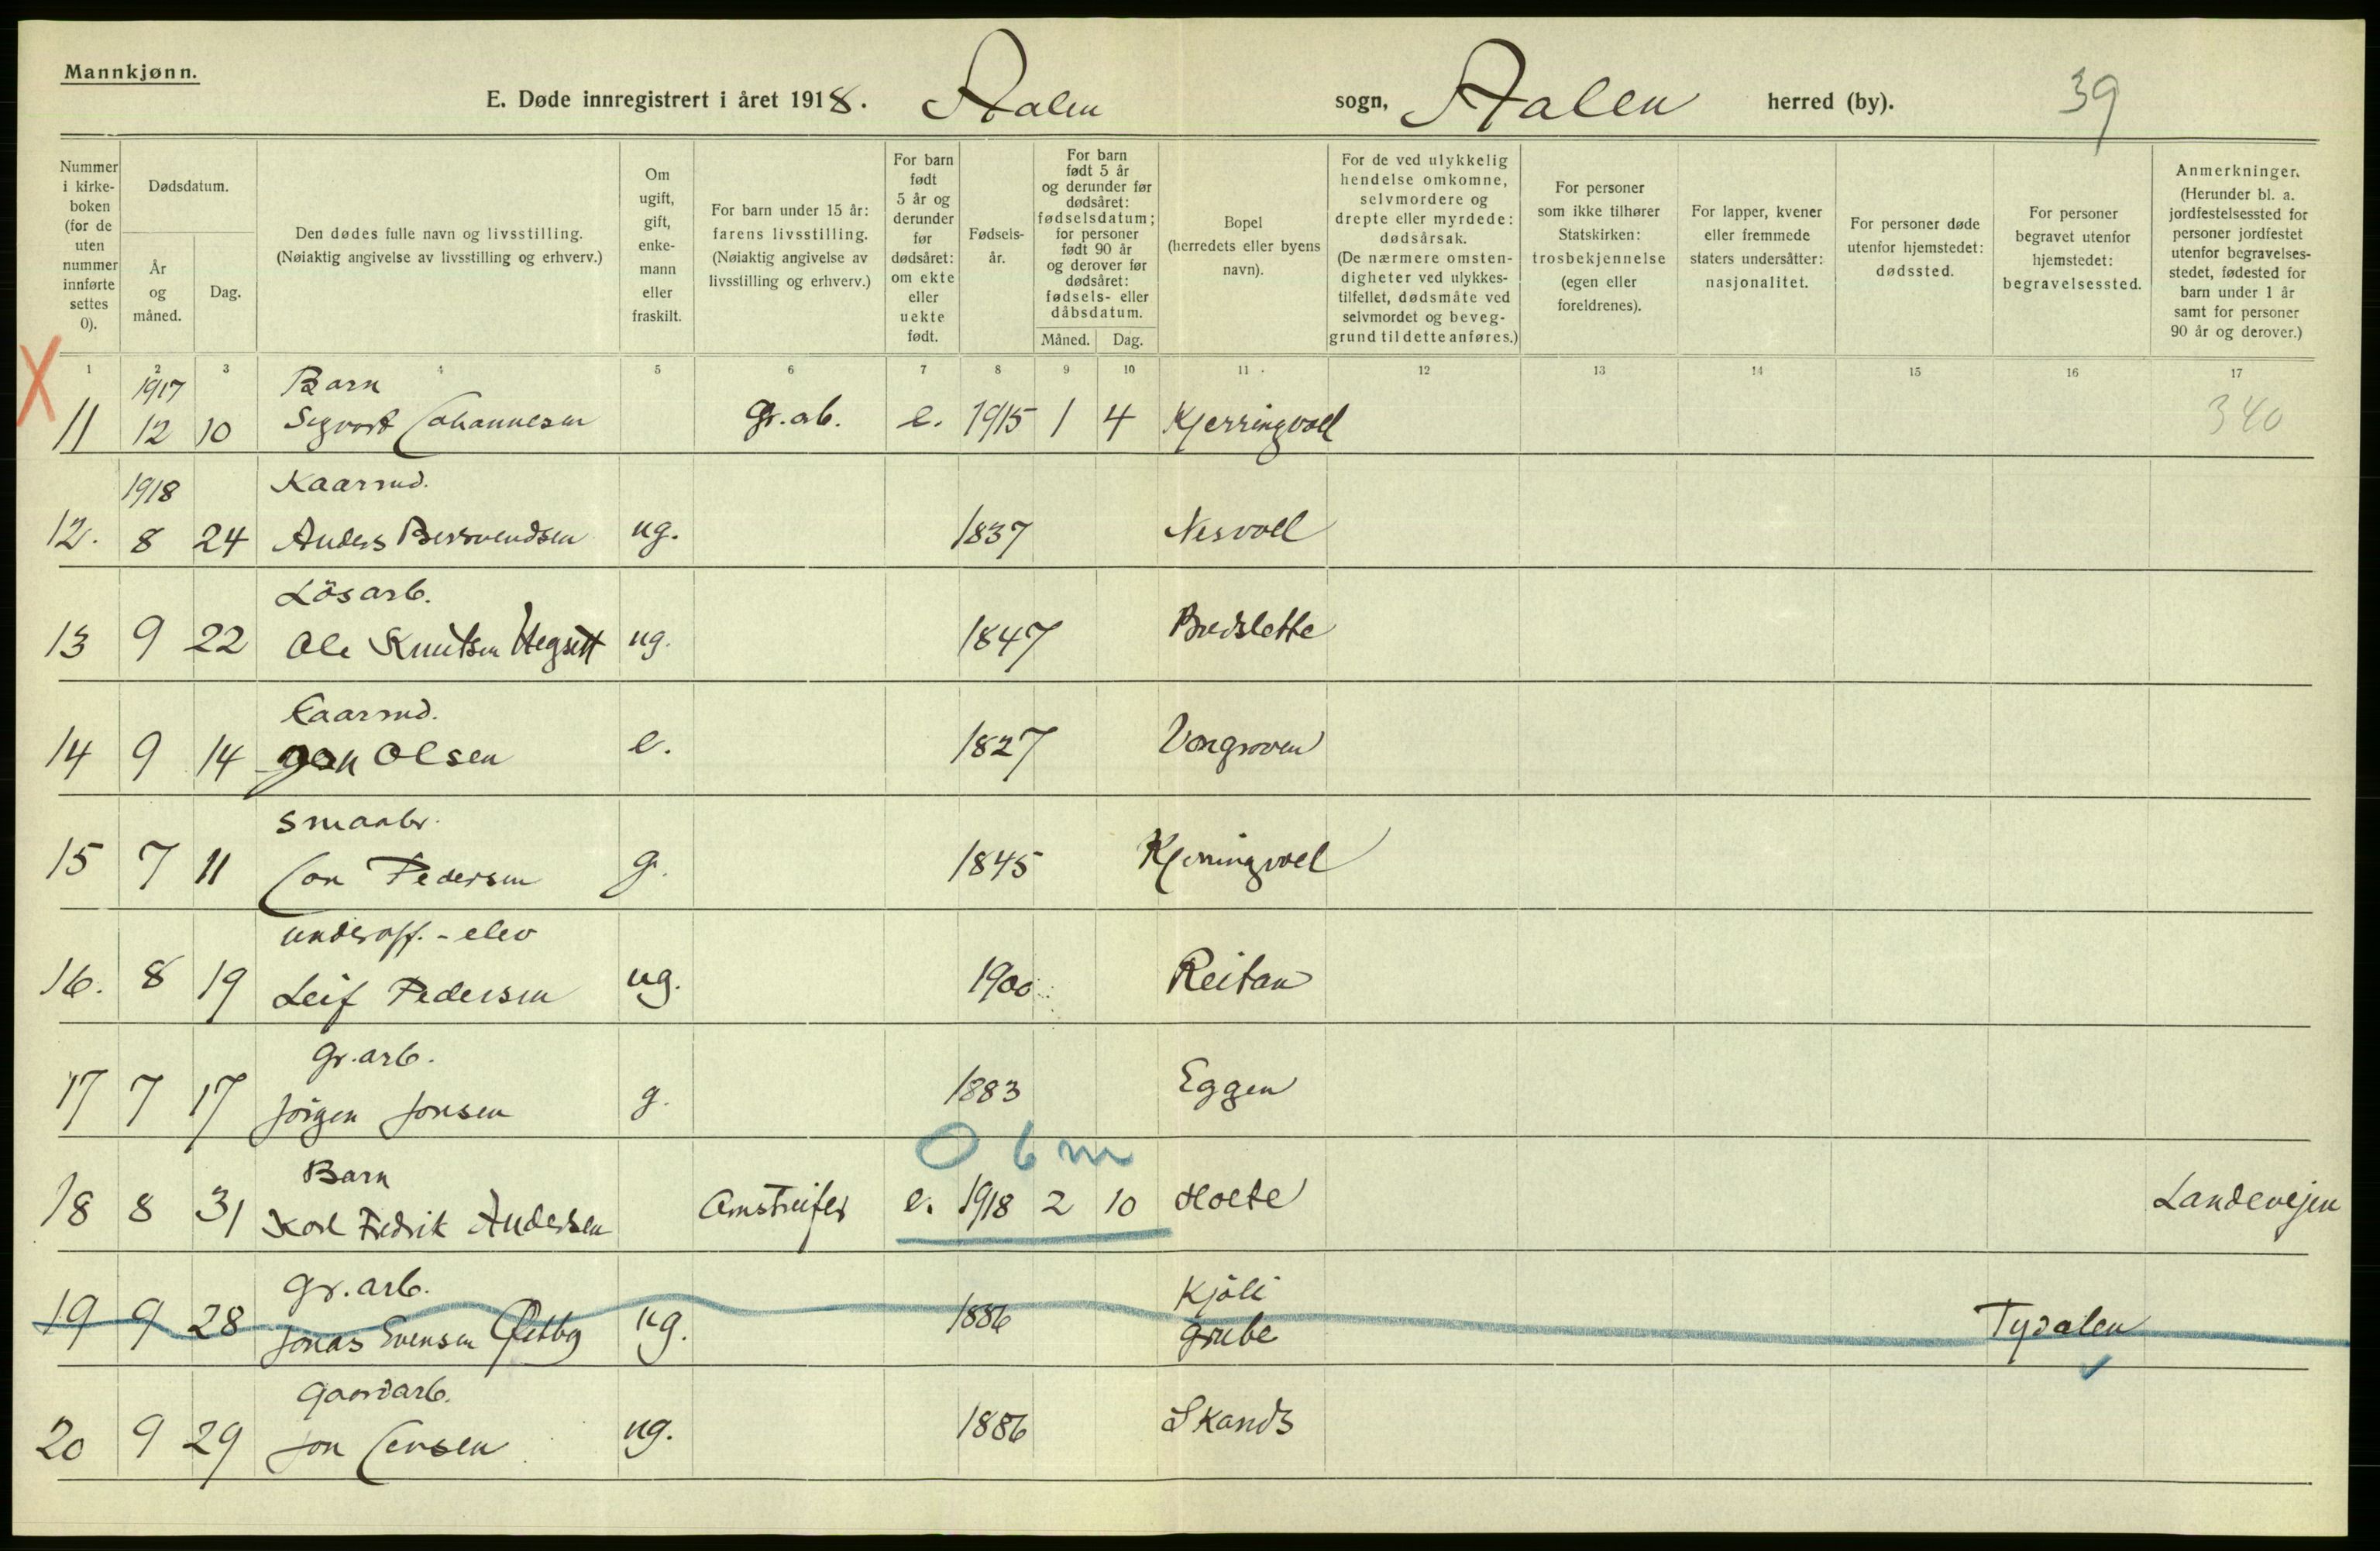 Mannkjønn.
E. Døde innregistrert i året 1918. Aalen sogn, Aalen herred (by). 39
Nummer i kirke-boken (for de uten nummer innførte settes 0).
Dødsdatum.
År og måned.
Dag.
Den dødes fulle navn og livsstilling. (Nøiaktig angivelse av livsstilling og erhverv.)
Om ugift, gift, enke-mann eller fraskilt.
For barn under 15 år: farens livsstilling. (Nøiaktig angivelse av livsstilling og erhverv.)
For barn født 5 år og derunder før dødsåret: om ekte eller uekte født.
Fødsels-år.
For barn født 5 år og derunder før dødsåret: fødselsdatum; for personer født 90 år og derover før dødsåret: fødsels- eller dåbsdatum.
Måned. Dag.
Bopel (herredets eller byens navn).
For de ved ulykkelig hendelse omkomne, selvmordere og drepte eller myrdede: dødsårsak. (De nærmere omsten-digheter ved ulykkes-tilfellet, dødsmåte ved selvmordet og beveg-grund til dette anføres.)
For personer som ikke tilhører Statskirken: trosbekjennelse (egen eller foreldrenes).
For lapper, kvener eller fremmede staters undersåtter: nasjonalitet.
For personer døde utenfor hjemstedet: dødssted.
For personer begravet utenfor hjemstedet: begravelsessted.
Anmerkninger. (Herunder bl. a. jordfestelsessted for personer jordfestet utenfor begravelses-stedet, fødested for barn under 1 år samt for personer 90 år og derover.)
1 2 3 4 5 6 7 8 9 10 11 12 13 14 15 16 17
X 1917 Barn
11 12 10 Sigvart Johannesen gr.arb. e. 1915 1 4 Kjerringvoll 340
1918 Kaarmd.
12. 8 24 Anders Bersvendsen ug. 1837 Nesvoll
Lösarb.
13 9 22 Ole Knutsen Hegsett ug. 1847 Bredslette
Kaarmd.
14 9 14 Jon Olsen e. 1827 Vongroven
Smaabr.
15 7 11 Jon Pedersen g. 1845 Kjerringvoll
underoff.-elev
16. 8 19 Leif Pedersen ug. 1900 Reitan
Gr.arb.
17 7 17 Jörgen Jonsen g. 1883 Eggen
0 6 m
Barn
18 8 31 Karl Fredrik Andersen Omstreifer e. 1918 2 10 Holte Landevejen
Gr.arb. Kjöli
19 9 28 Jonas Evensen ug. 1886 Grube Tydalen
Gaardarb.
20 9 29 Jon Jensen ug. 1886 Skands